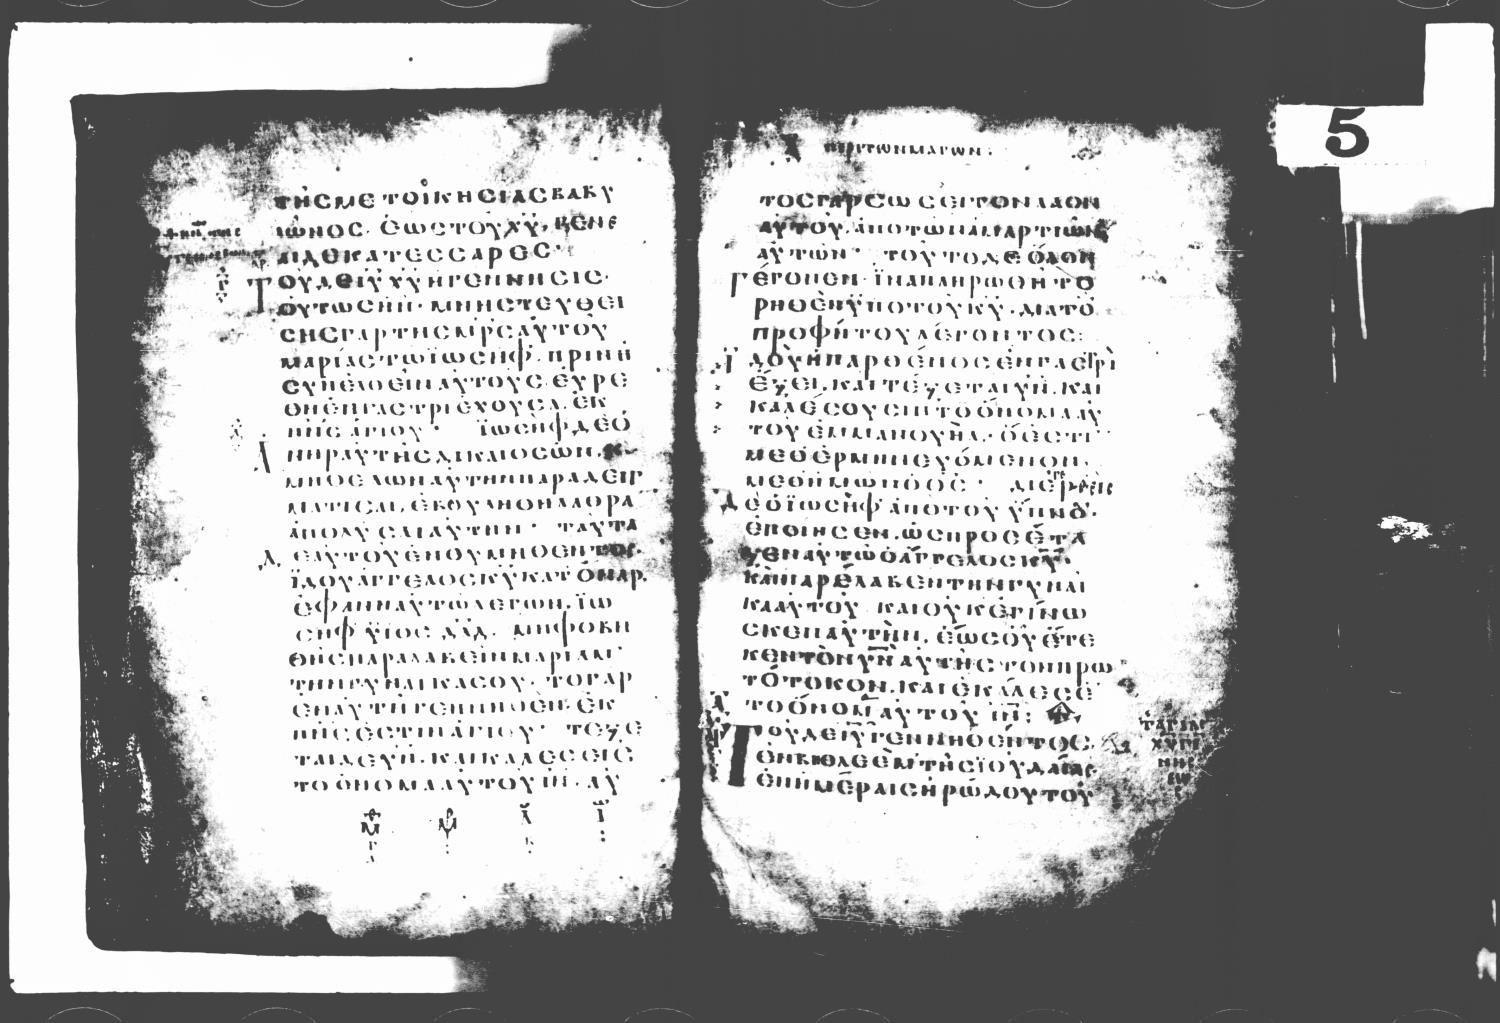 ΤΗΣΜΕΤΟΙΚΗΣΙΑΣΒΑΒΥ
ΛΩΝΟΣ· ΕΩΣΤΟΥΧΥ· ΓΕΝΕ
ΑΙΔΕΚΑΤΕΣΣΑΡΕΣ·
ΤΟΥΔΕΙΥΧΥΗΓΕΝΝΗΣΙΣ·
ΟΥΤΩΣΗΝ· ΜΝΗΣΤΕΥΘΕΙ
ΣΗΣΓΑΡΤΗΣΜΡΣΑΥΤΟΥ
ΜΑΡΙΑΣΤΩΙΩΣΗΦ· ΠΡΙΝΗ
ΣΥΝΕΛΘΕΙΝΑΥΤΟΥΣ· ΕΥΡΕ
ΘΗΕΝΓΑΣΤΡΙΕΧΟΥΣΑ· ΕΚ
ΠΝΣΑΓΙΟΥ· ΙΩΣΗΦΔΕΟ
ΑΝΗΡΑΥΤΗΣΔΙΚΑΙΟΣΩΝ· Κ
ΜΗΘΕΛΩΝΑΥΤΗΝΠΑΡΑΔΕΙΓ
ΜΑΤΙΣΑΙ· ΕΒΟΥΛΗΘΗΛΑΘΡΑ
ΑΠΟΛΥΣΑΙΑΥΤΗΝ· ΤΑΥΤΑ
ΔΕΑΥΤΟΥΕΝΘΥΜΗΘΕΝΤΟΣ·
ΙΔΟΥΑΓΓΕΛΟΣΚΥΚΑΤΟΝΑΡ·
ΕΦΑΝΗΑΥΤΩΛΕΓΩΝ· ΙΩ
ΣΗΦ ΥΙΟΣ ΔΑΔ· ΜΗΦΟΒΗ
ΘΗΣΠΑΡΑΛΑΒΕΙΝΜΑΡΙΑΜ
ΤΗΝΓΥΝΑΙΚΑΣΟΥ· ΤΟΓΑΡ
ΕΝΑΥΤΗΓΕΝΝΗΘΕΝ· ΕΚ
ΠΝΣΕΣΤΙΝΑΓΙΟΥ· ΤΕΞΕ
ΤΑΙΔΕΥΝ· ΚΑΙΚΑΛΕΣΕΙΣ
ΤΟΟΝΟΜΑΑΥΤΟΥΙΝ· ΑΥ
ΤΩΝΜΑΓΩΝ·
ΤΟΣΓΑΡΣΩΣΕΙΤΟΝΛΑΟΝ
ΑΥΤΟΥ· ΑΠΟΤΩΝΑΜΑΡΤΙΩΝ
ΑΥΤΩΝ· ΤΟΥΤΟΔΕΟΛΟΝ
ΓΕΓΟΝΕΝ· ΙΝΑΠΛΗΡΩΘΗΤΟ
ΡΗΘΕΝΥΠΟΤΟΥΚΥ· ΔΙΑΤΟ
ΠΡΟΦΗΤΟΥΛΕΓΟΝΤΟΣ:
ΙΔΟΥΗΠΑΡΘΕΝΟΣΕΝΓΑΣΤΡΙ
ΕΞΕΙ· ΚΑΙΤΕΞΕΤΑΙΥΝ· ΚΑΙ
ΚΑΛΕΣΟΥΣΙΝΤΟΟΝΟΜΑΑΥ
ΤΟΥΕΜΜΑΝΟΥΗΛ· ΟΕΣΤΙ
ΜΕΘΕΡΜΗΝΕΥΟΜΕΝΟΝ·
ΜΕΘΗΜΩΝΟΘΣ· ΔΙΕΓΕΡΘΕΙΣ
ΔΕΟΙΩΣΗΦΑΠΟΤΟΥΥΠΝΟΥ·
ΕΠΟΙΗΣΕΝ· ΩΣΠΡΟΣΕΤΑ
ΞΕΝΑΥΤΩΟΑΓΓΕΛΟΣΚΥ·
ΚΑΙΠΑΡΕΛΑΒΕΝΤΗΝΓΥΝΑΙ
ΚΑΑΥΤΟΥ· ΚΑΙΟΥΚΕΓΙΝΩ
ΣΚΕΝΑΥΤΗΝ· ΕΩΣΟΥΕΤΕ
ΚΕΝΤΟΝΥΝΑΥΤΗΣΤΟΝΠΡΩ
ΤΟΤΟΚΟΝ· ΚΑΙΕΚΑΛΕΣΕ
ΤΟΟΝΟΜΑΑΥΤΟΥΙΝ:
ΤΟΥΔΕΙΥΓΕΝΝΗΘΕΝΤΟΣ·
ΕΝΒΗΘΛΕΕΜΤΗΣΙΟΥΔΑΙΑΣ·
ΕΝΗΜΕΡΑΙΣΗΡΩΔΟΥΤΟΥ
5